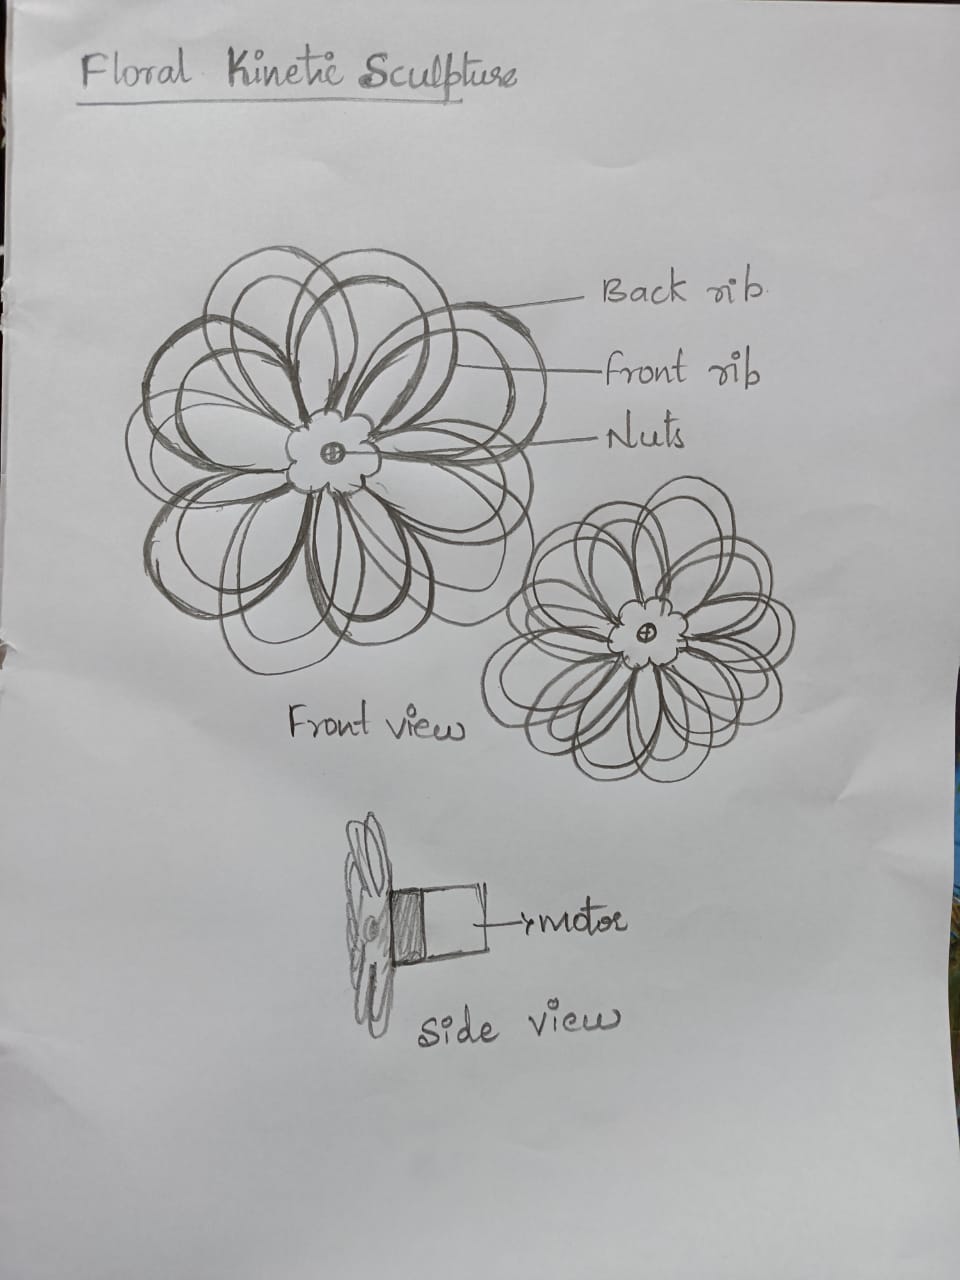 Floral Kinetic Sculpture
Back rib
Front rib
Nuts
Front view
motor
Side view